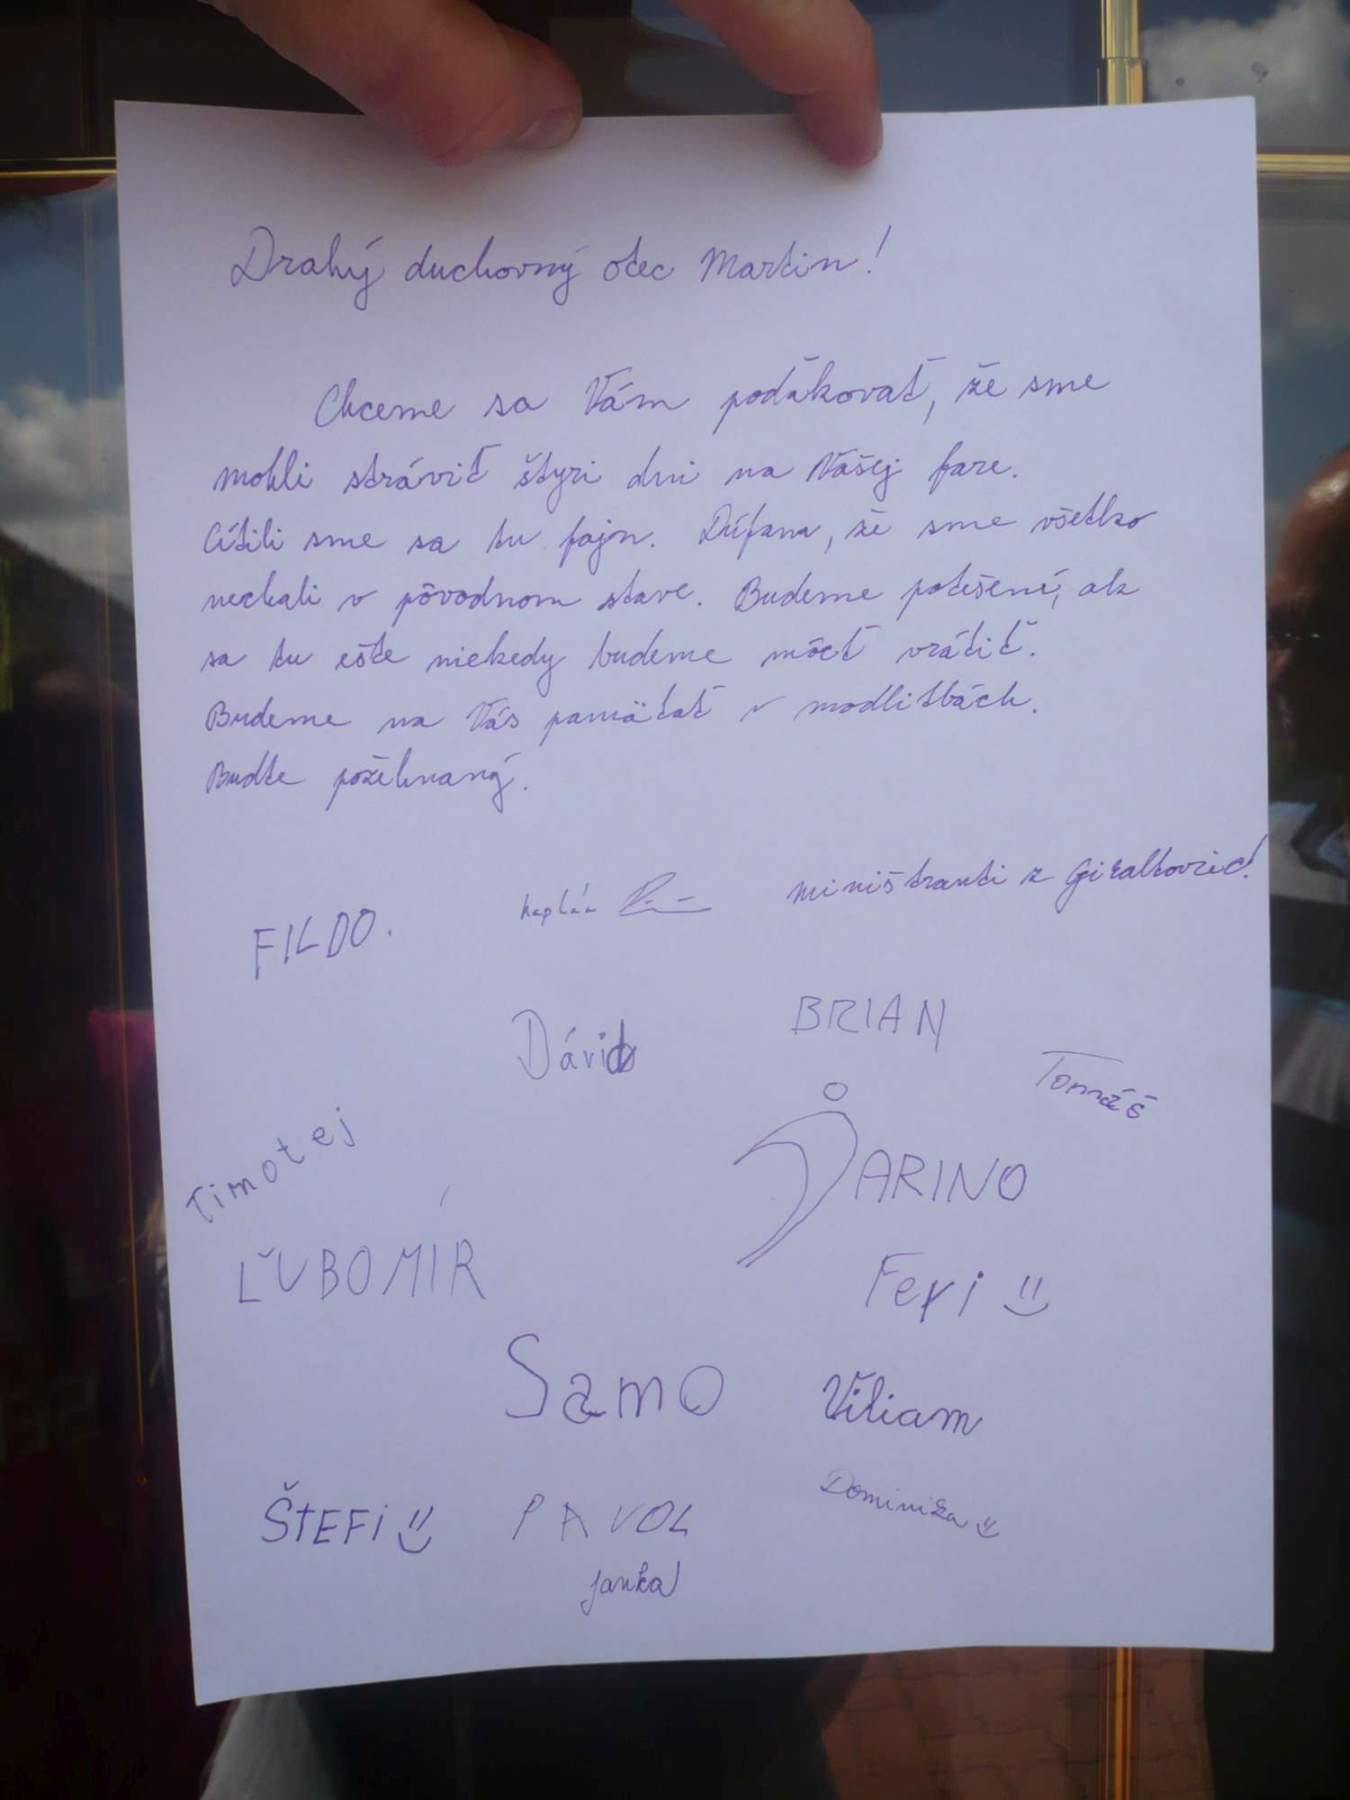 Drahý duchovný otec Martin!
Chceme sa Vám poďakovať, že sme
mohli stráviť štyri dni na Vašej fare.
Cítili sme sa tu fajn. Dúfame, že sme všetko
nechali v pôvodnom stave. Budeme potešení, ak
sa tu ešte niekedy budeme môcť vrátiť.
Budeme na Vás pamätať v modlitbách.
Buďte požehnaný.
kaplán miništranti z Giraltoviec!
FILDO.
Dávid BRIAN
Tomáš
Timotej
JARINO
ĽUBOMÍR
Feri
Samo Viliam
ŠTEFI PAVOL Dominika
Janka